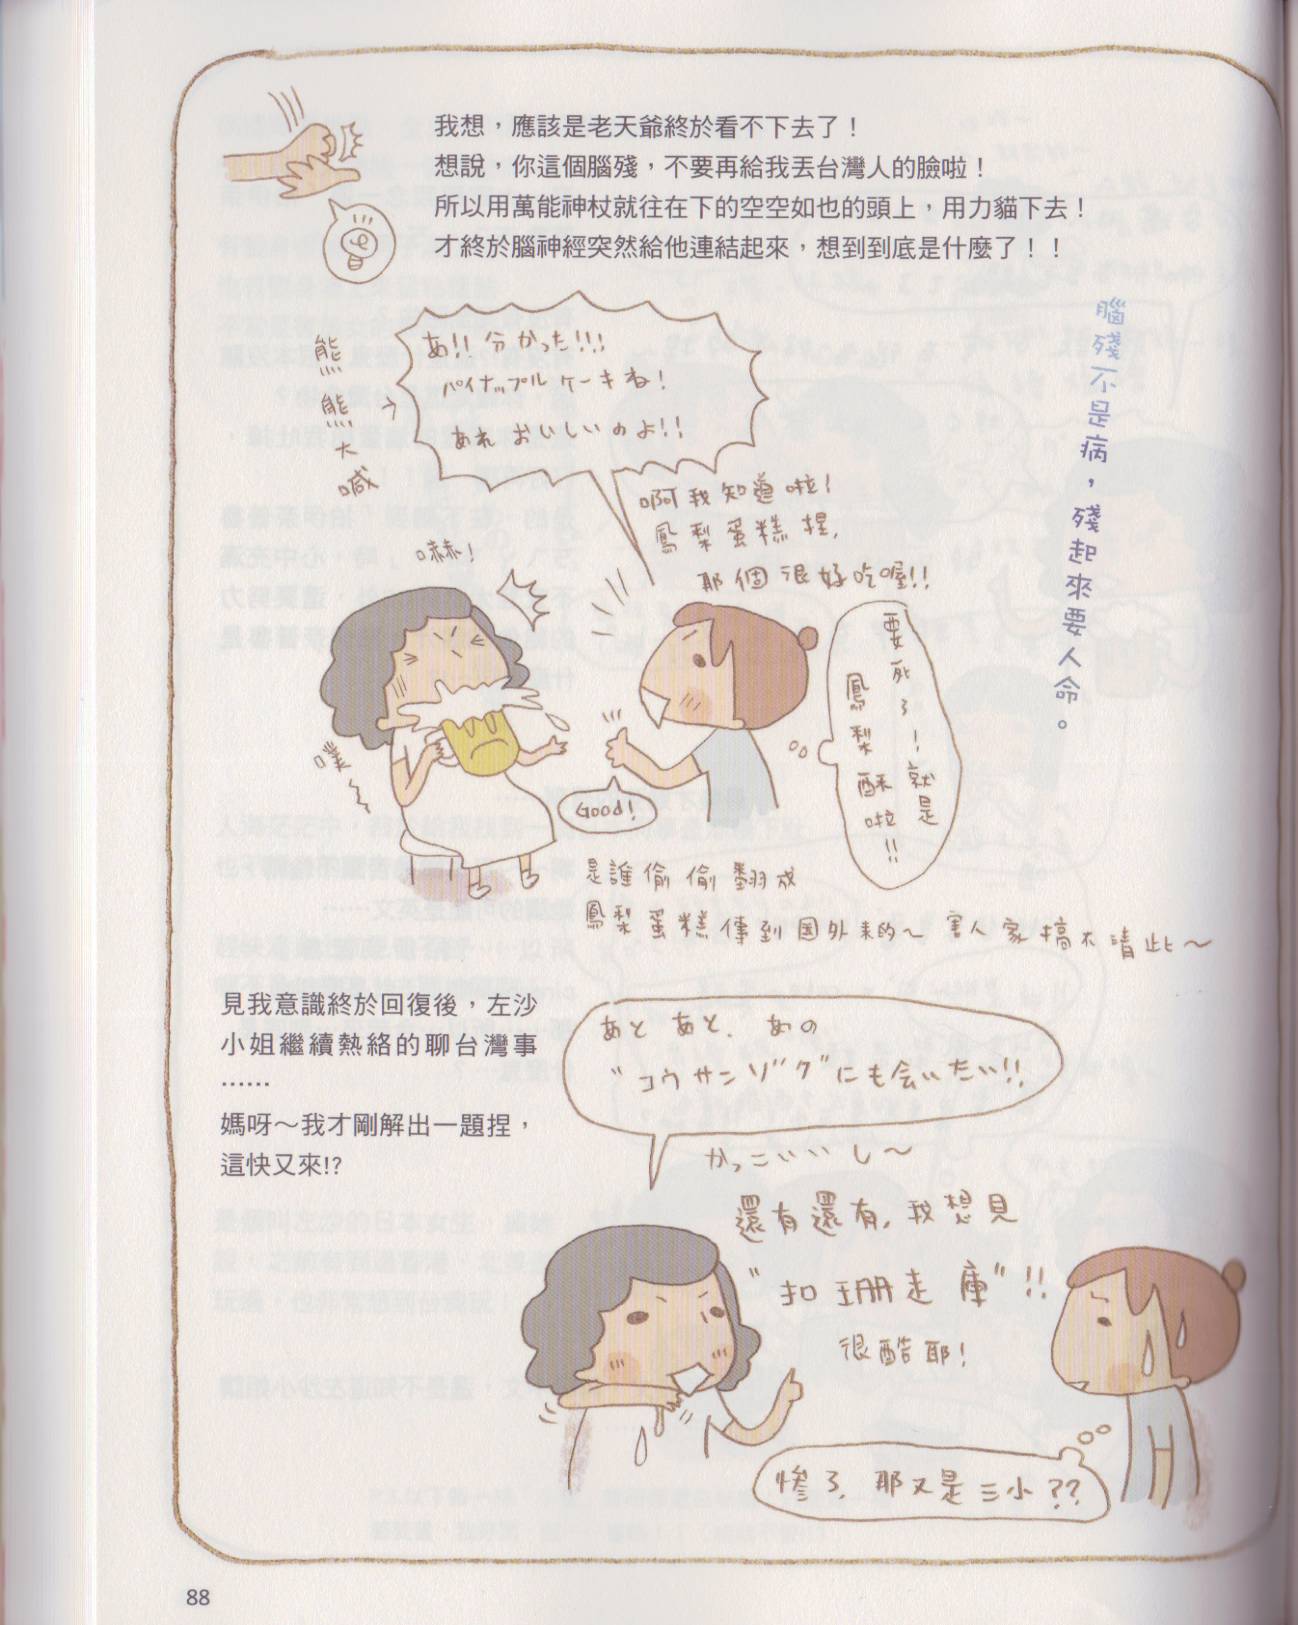 我想，應該是老天爺終於看不下去了！
想說，你這個腦殘，不要再給我丟台灣人的臉啦！
所以用萬能神杖就往在下的空空如也的頭上，用力貓下去！
才終於腦神經突然給他連結起來，想到到底是什麼了！！
腦殘不是病，殘起來要人命。
熊熊大喊
あ!!分かった!!!
パイナップルケーキね!
あれおいしいのよ!!
啊我知道啦!
鳳梨蛋糕捏,
那個很好吃喔!!
嚇!
噗～
Good!
要死了!就是
鳳梨酥啦!!
是誰偷偷翻成
鳳梨蛋糕傳到国外來的～害人家搞不清此～
見我意識終於回復後，左沙
小姐繼續熱絡的聊台灣事
……
媽呀～我才剛解出一題捏，
這快又來!?
あとあと、あの
"コウサンゾグ"にも会いたい!!
かっこいいし～
還有還有,我想見
"扣珊走庫"!!
很酷耶!
慘了,那又是三小??
88